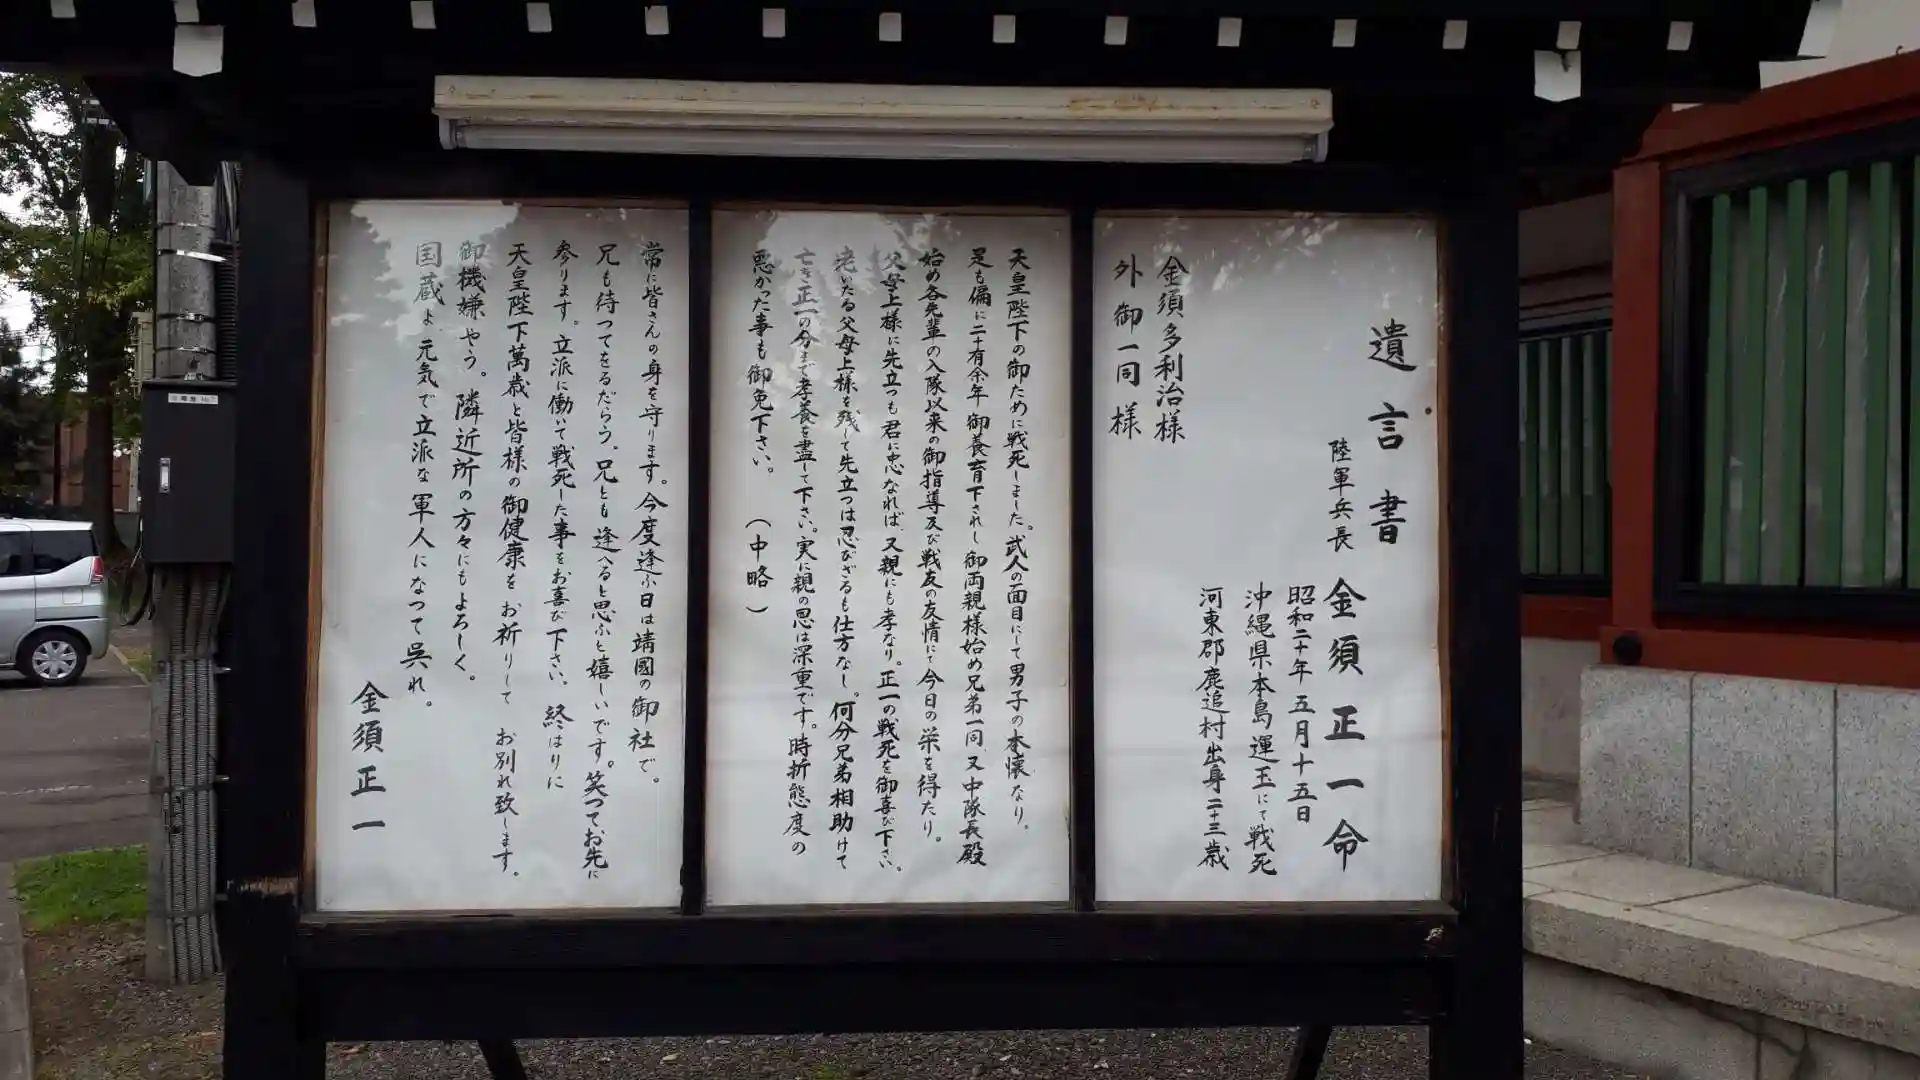 遺言書
陸軍兵長 金須正一命
昭和二十年五月十五日
沖縄県本島運玉にて戦死
河東郡鹿追村出身二十三歳
金須多利治様
外御一同様
天皇陛下の御ために戦死しました。武人の面目にして男子の本懐なり。
是も偏に二十有余年御養育下されし御両親様始め兄弟一同、又中隊長殿
始め各先輩の入隊以来の御指導及び戦友の友情にて今日の栄を得たり。
父母上様に先立つも君に忠なれば、又親にも孝なり。正一の戦死を御喜び下さい。
老いたる父母上様を残して先立つは忍びざるも仕方なし。何分兄弟相助けて
亡き正一の分まで孝養を盡して下さい。実に親の恩は深重です。時折態度の
悪かった事も御免下さい。 (中略)
常に皆さんの身を守ります。今度逢ふ日は靖國の御社で。
兄も待つてをるだらう。兄とも逢へると思ふと嬉しいです。笑つてお先に
参ります。立派に働いて戦死した事をお喜び下さい。終はりに
天皇陛下萬歳と皆様の御健康をお祈りして お別れ致します。
御機嫌やう。隣近所の方々にもよろしく。
国蔵よ、元気で立派な軍人になつて呉れ。
金須正一